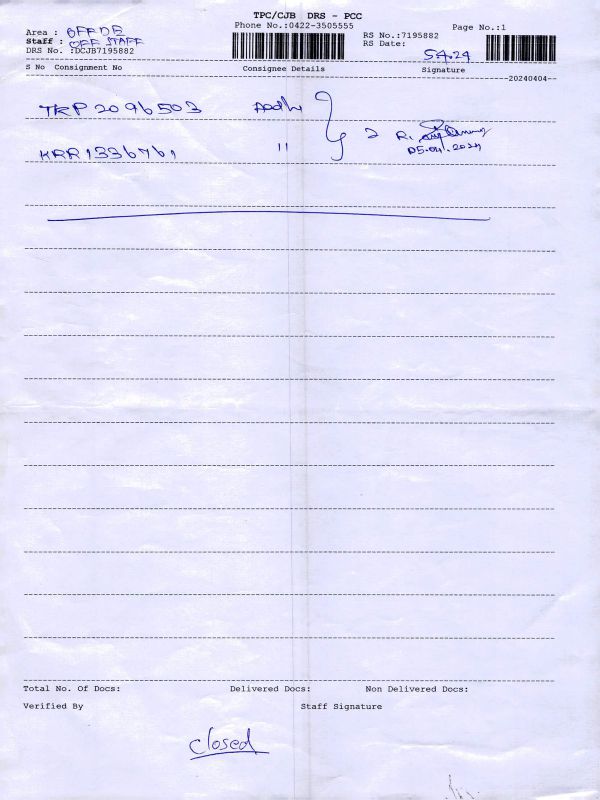 TPC/CJB DRS - PCC
Phone No.:0422-3505555
Page No.:1
Area : OFFDE
Staff : OFF STAFF
DRS No. :DCJB7195882
RS No.:7195882
RS Date: 5.4.24
S No Consignment No Consignee Details Signature
20240404
TKP2096503 2 R.
KRR1336761 11 05.04.2024
Total No. Of Docs: Delivered Docs: Non Delivered Docs:
Verified By Staff Signature
closed